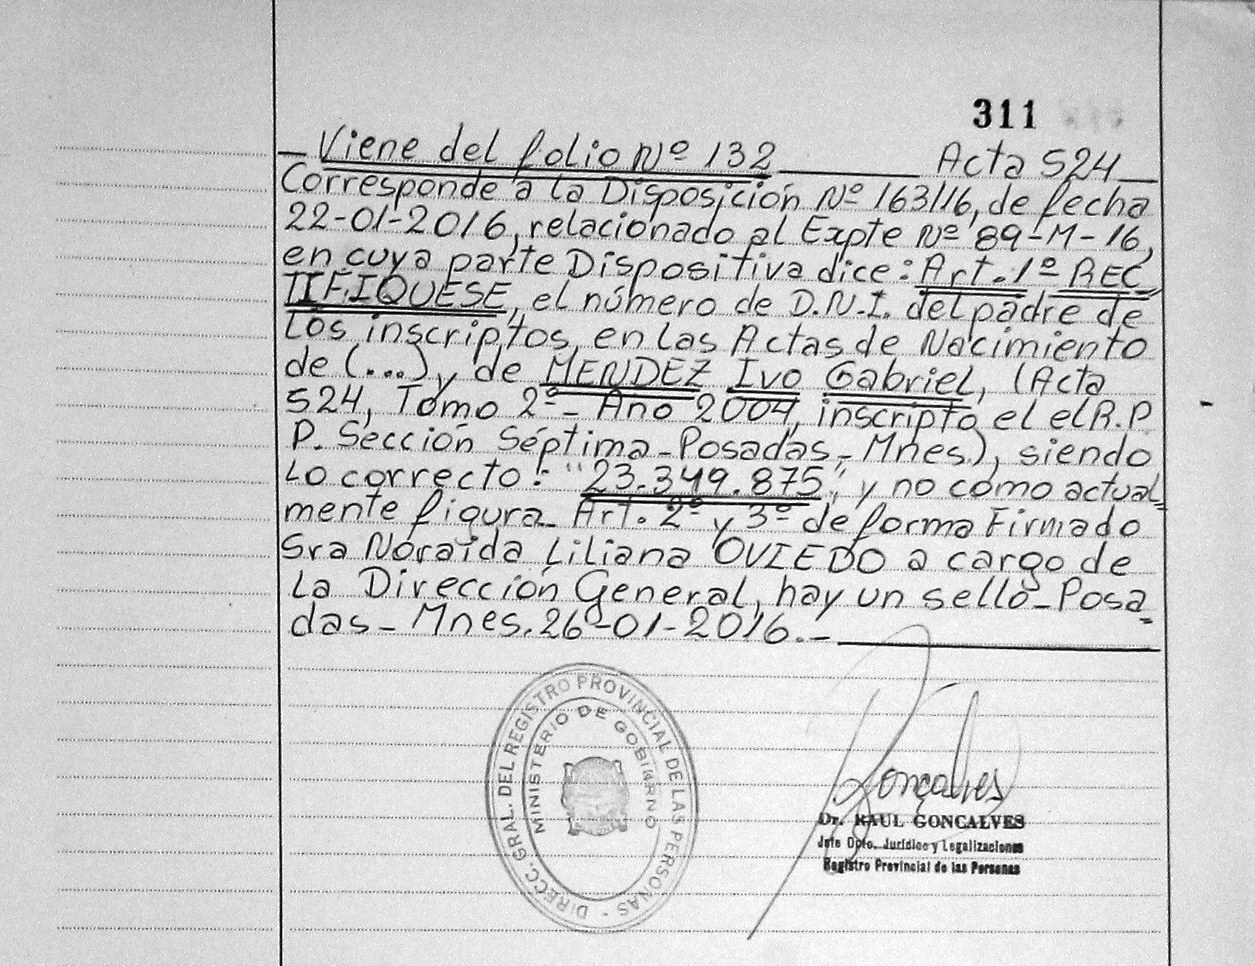 311
Viene del folio Nº 132 Acta 524
Corresponde a la Disposición Nº 163/16, de fecha
22-01-2016, relacionado al Expte Nº 89-M-16,
en cuya parte Dispositiva dice: Art. 1º REC
TIFIQUESE, el número de D.N.I. del padre de
Los inscriptos, en las Actas de Nacimiento
de (...) y de MENDEZ Ivo Gabriel, (Acta
524, Tomo 2º- Año 2004, inscripto el el R.P.
P. Sección Séptima-Posadas-Mnes), siendo
Lo correcto: "23.349.875", y no como actual=
mente figura. Art. 2º y 3º de forma Firmado
Sra Noraida Liliana OVIEDO a cargo de
La Dirección General, hay un sello-Posa=
das-Mnes. 26-01-2016.-
DIRECC. GRAL. DEL REGISTRO PROVINCIAL DE LAS PERSONAS -
MINISTERIO DE GOBIERNO
Gonçalves
Dr. RAUL GONCALVES
Jefe Dpto. Jurídico y Legalizaciones
Registro Provincial de las Personas